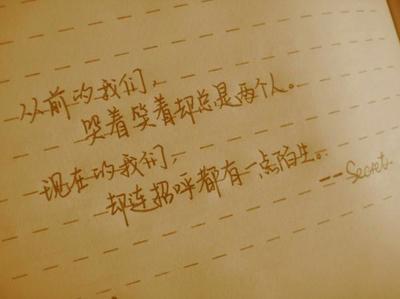 从前的我们，
哭着笑着却总是两个人。
现在的我们，
却连招呼都有一点陌生。
--- Secret.